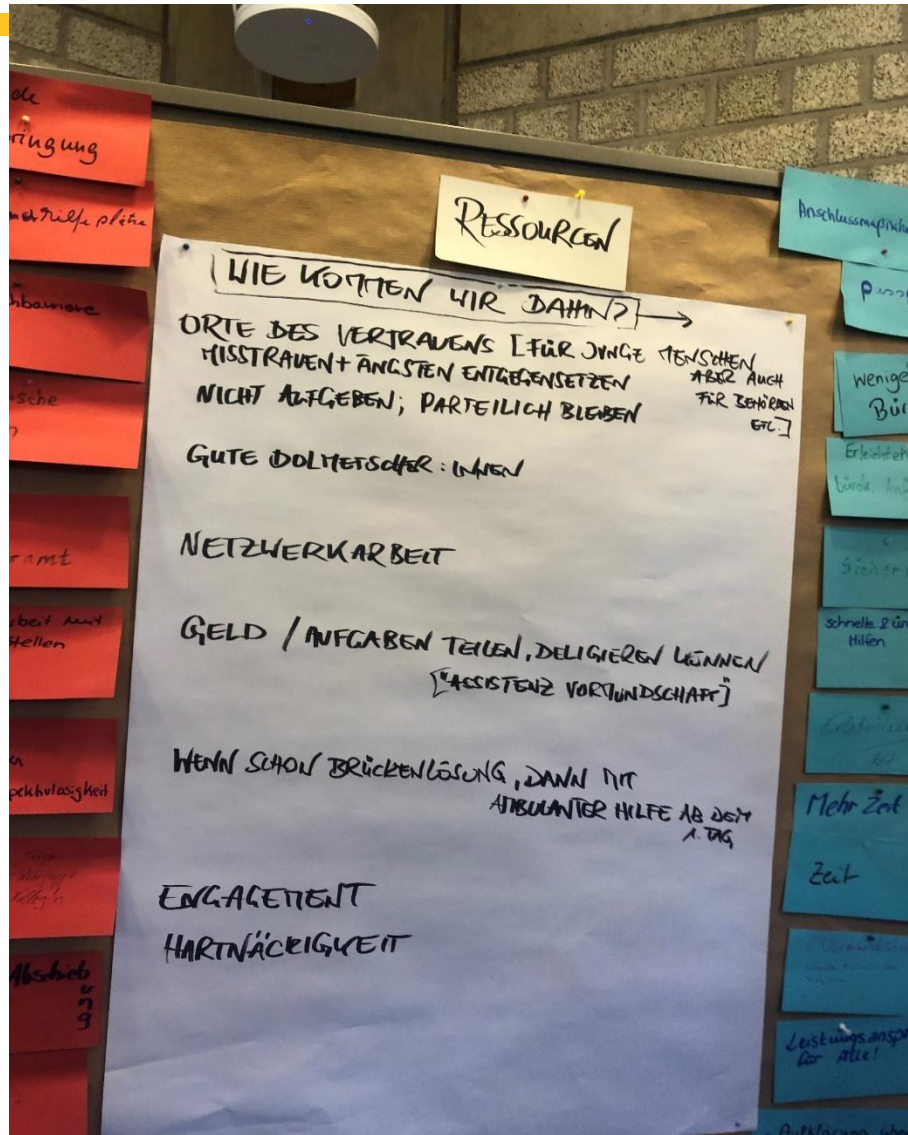 de
ringung
hbarriere
sche
ramt
beit mit
stellen
pektivlosigkeit
Abschieb
u
n
g
RESSOURCEN
WIE KOMMEN WIR DAHIN? →
ORTE DES VERTRAUENS [FÜR JUNGE MENSCHEN
ABER AUCH
FÜR BEHÖRDEN
ETC.]
MISSTRAUEN + ÄNGSTEN ENTGEGENSETZEN
NICHT AUFGEBEN; PARTEILICH BLEIBEN
GUTE DOLMETSCHER:INNEN
NETZWERKARBEIT
GELD / AUFGABEN TEILEN, DELIGIEREN KÖNNEN
["ASSISTENZ VORMUNDSCHAFT"]
WENN SCHON BRÜCKENLÖSUNG, DANN MIT
AMBULANTER HILFE AB DEM
1. TAG
ENGAGEMENT
HARTNÄCKIGKEIT
Anschlussmaßnah
wenige
Bür
Erleichter
bürok.
Sicher
schnelle
Hilfen
Mehr Zeit
Zeit
Leistungsanspr
für Alle!
Aufklärung über